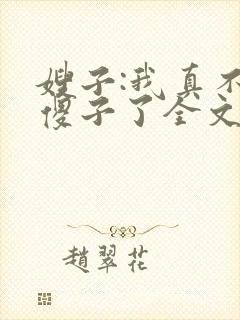 嫂子:我真不
傻子了全文
趙翠花